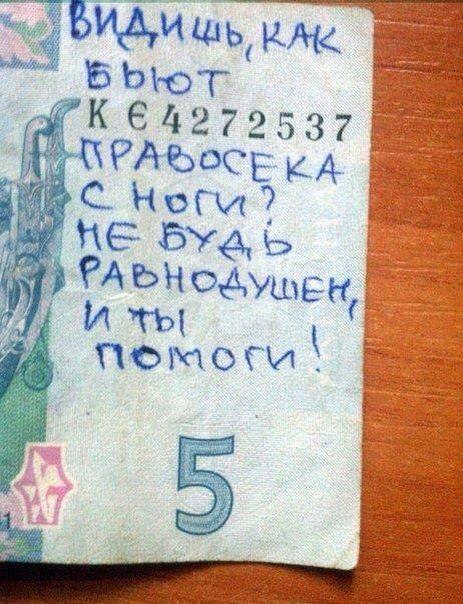 ВИДИШЬ, КАК
БЬЮТ
КЄ4272537
ПРАВОСЕКА
С НОГИ?
НЕ БУДЬ
РАВНОДУШЕН,
И ТЫ
ПОМОГИ!
5